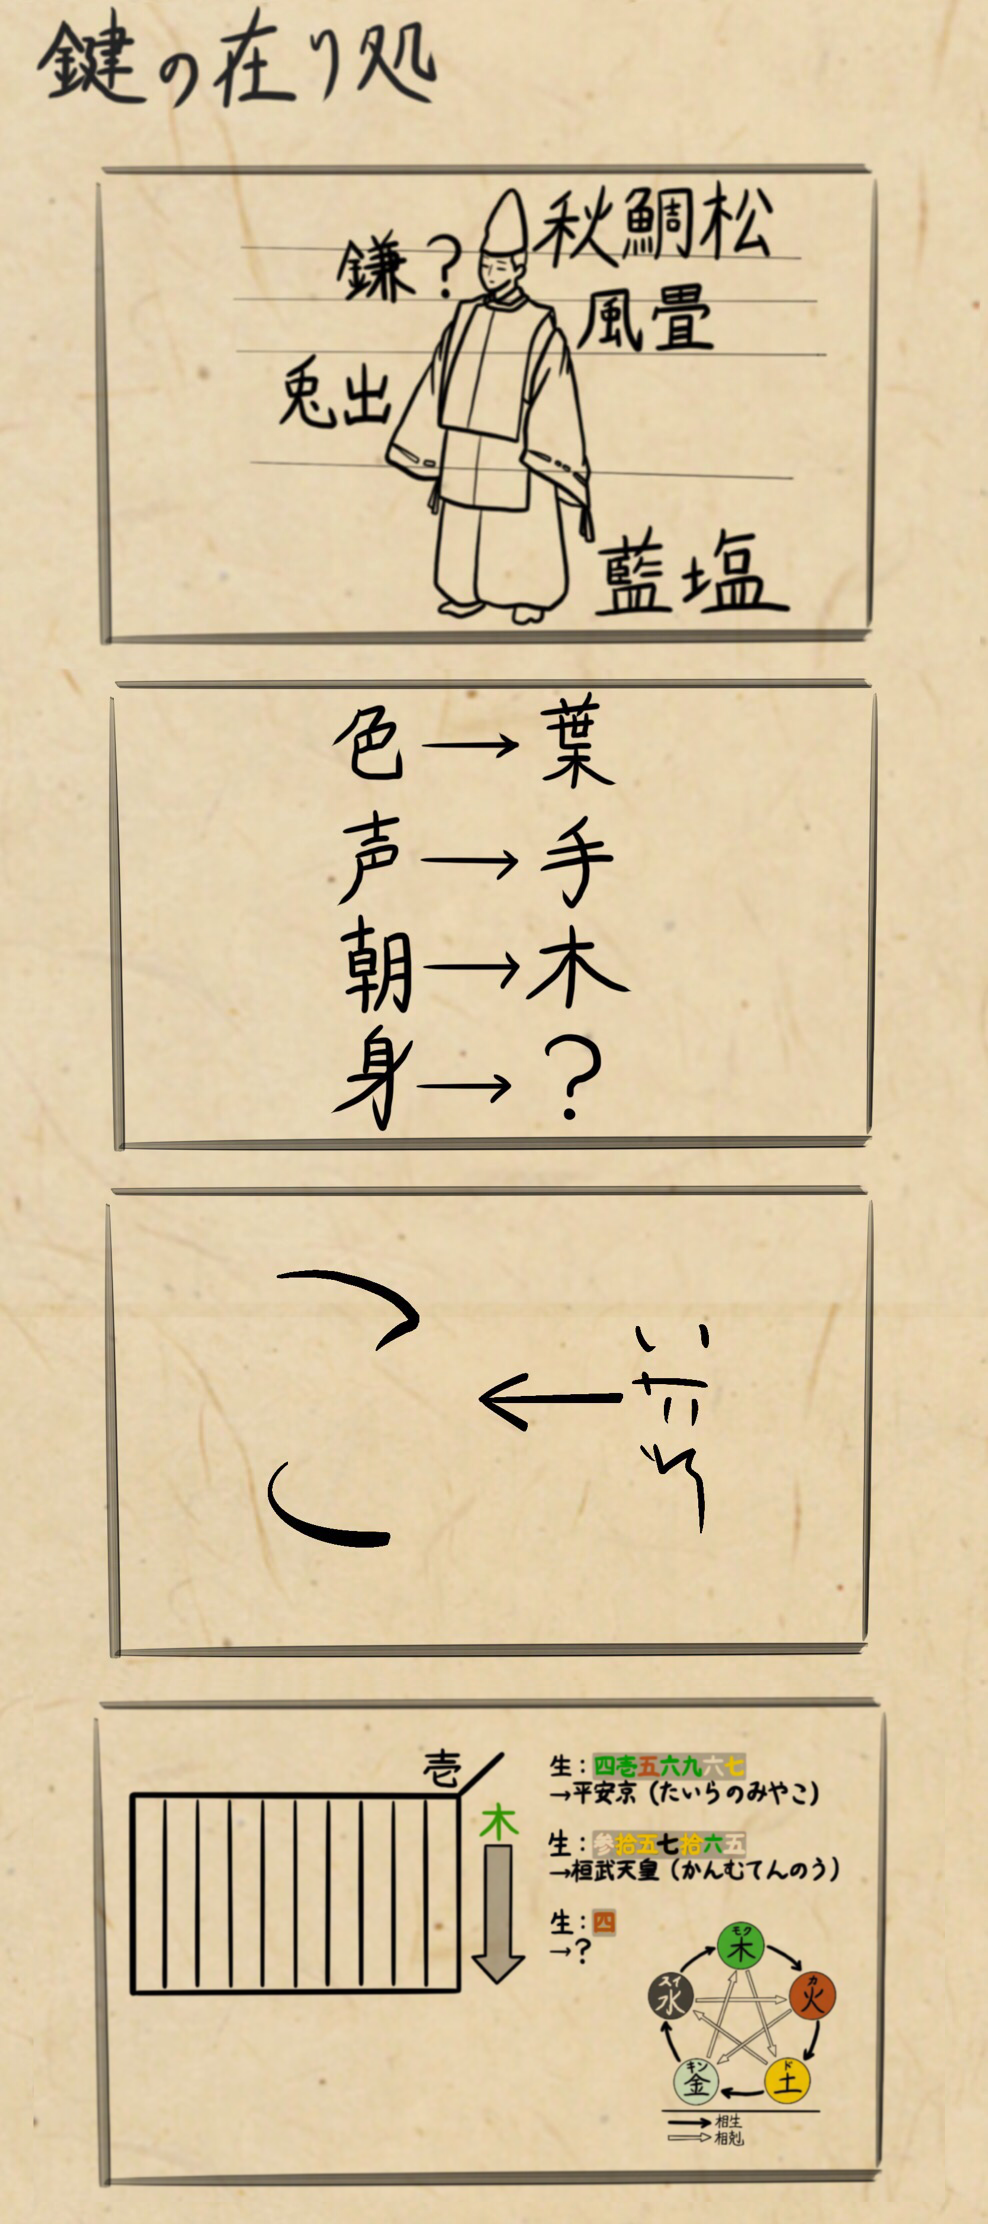 鍵の在り処
秋鯛松
鎌？
風畳
兎出
藍塩
色→葉
声→手
朝→木
身→？
壱
木
生：四壱五六九六七
→平安京（たいらのみやこ）
生：参拾五七拾六五
→桓武天皇（かんむてんのう）
生：四
→？
モク
木
カ
火
ド
土
キン
金
スイ
水
相生
相剋